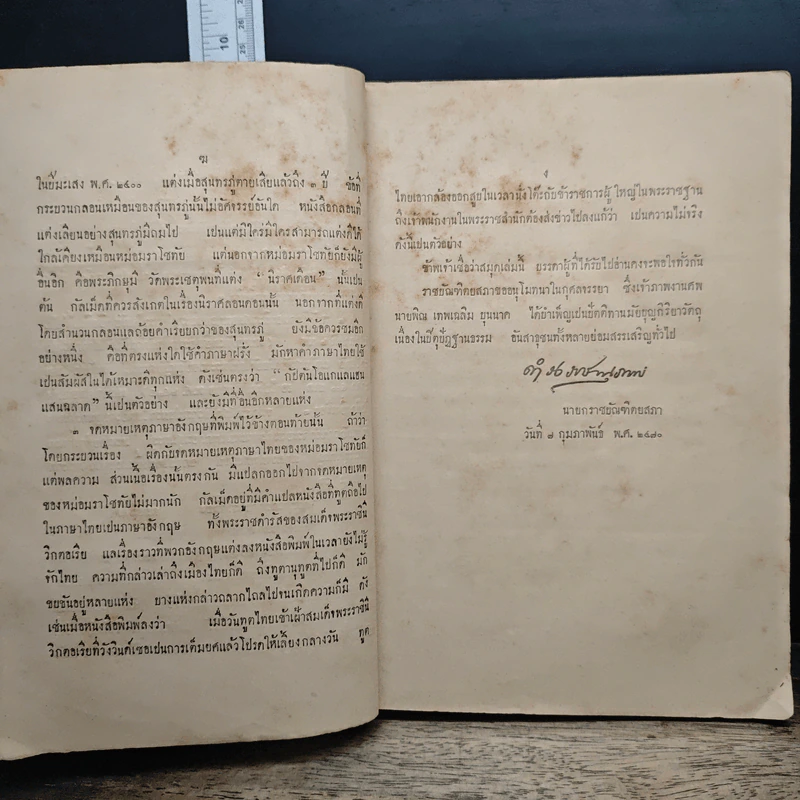 10
25
26
ฆ
ในปีมะเสง พ.ศ. ๒๔๐๐ แต่งเมื่อสุนทรภู่ตายเสียแล้วถึง ๓ ปี ข้อที่
กระบวนกลอนเหมือนของสุนทรภู่นั้นไม่อัศจรรย์อันใด หนังสือกลอนที่
แต่งเลียนอย่างสุนทรภู่มีถมไป เปนแต่มิใคร่มีใครสามารถแต่งดีได้
ใกล้เคียงเหมือนหม่อมราโชทัย แต่นอกจากหม่อมราโชทัยก็ยังมีผู้
อื่นอีก คือพระภิกษุมี วัดพระเชตุพนที่แต่ง “นิราศเดือน” นั้นเปน
ต้น กัลเม็ดที่ควรสังเกตในเรื่องนิราศลอนดอนนั้น นอกจากที่แต่งดี
โดยสำนวนกลอนแลถ้อยคำเรียบกว่าของสุนทรภู่ ยังมีข้อควรชมอีก
อย่างหนึ่ง คือที่ตรงแห่งใดใช้คำภาษาฝรั่ง มักหาคำภาษาไทยใช้
เปนสัมผัสในได้เหมาะดีทุกแห่ง ดังเช่นตรงว่า “กัปตันโอแกแลแอน
แสนฉลาด” นี้เปนตัวอย่าง และยังมีที่อื่นอีกหลายแห่ง
๓ จดหมายเหตุภาษาอังกฤษที่พิมพ์ไว้ข้างตอนท้ายนั้น ถ้าว่า
โดยกระบวนเรื่อง ผิดกับจดหมายเหตุภาษาไทยของหม่อมราโชทัยก็
แต่พลความ ส่วนเนื้อเรื่องนั้นตรงกัน มีแปลกออกไปจากจดหมายเหตุ
ของหม่อมราโชทัยไม่มากนัก กัลเม็ดอยู่ที่มีคำแปลหนังสือที่ทูตถือไป
ในภาษาไทยเปนภาษาอังกฤษ ทั้งพระราชดำรัสของสมเด็จพระราชินี
วิกตอเรีย แลเรื่องราวที่พวกอังกฤษแต่งลงหนังสือพิมพ์ในเวลายังไม่รู้
จักไทย ความที่กล่าวเล่าถึงเมืองไทยก็ดี ถึงทูตานุทูตที่ไปก็ดี มัก
ขบขันอยู่หลายแห่ง บางแห่งกล่าวถลากไถลไปจนเกิดความก็มี ดัง
เช่นเมื่อหนังสือพิมพ์ลงว่า เมื่อวันทูตไทยเข้าเฝ้าสมเด็จพระราชินี
วิกตอเรียที่วังวินด์เซอเปนการเต็มยศแล้วโปรดให้เลี้ยงกลางวัน ทูต
ง
ไทยเอากล้องออกสูบในเวลานั่งโต๊ะกับข้าราชการผู้ใหญ่ในพระราชฐาน
ถึงเจ้าพนักงานในพระราชสำนักต้องส่งข่าวไปลงแก้ว่า เปนความไม่จริง
ดังนี้เปนตัวอย่าง
ข้าพเจ้าเชื่อว่าสมุดเล่มนี้ บรรดาผู้ที่ได้รับไปอ่านคงจะพอใจทั่วกัน
ราชบัณฑิตยสภาขออนุโมทนาในกุศลจรรยา ซึ่งเจ้าภาพงานศพ
นายพิณ เทพเฉลิม บุนนาค ได้บำเพ็ญเปนปัตติทานมัยบุญกิริยาวัตถุ
เนื่องในปัตุปัฏฐานธรรม อันสาธุชนทั้งหลายย่อมสรรเสริญทั่วไป
ดำรงราชานุภาพ
นายกราชบัณฑิตยสภา
วันที่ ๘ กุมภาพันธ์ พ.ศ. ๒๔๗๐